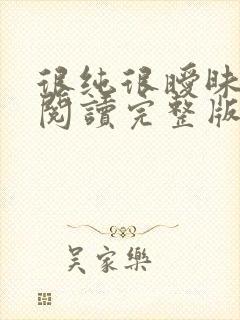 很純很曖昧
閱讀完整版
吴家樂